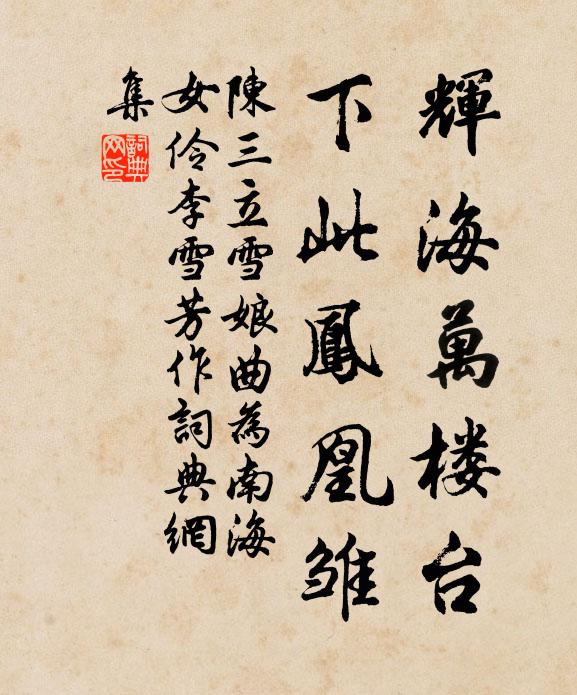 輝海萬楼台
下此鳳凰雏
陳三立雪娘曲為南海
女伶李雪芳作詞典網
集
詞典
网印